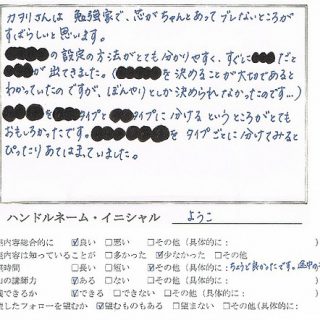 カヲリさんは 勉強家で、芯がちゃんとあってブレないところが
すばらしいと思います。
の設定の方法がとても分かりやすく、すぐに だと
が出てきました。( を決めることが大切であると
わかっていたのですが、ぼんやりとしか決められなかったのです…)
を タイプと タイプに分けるというところがとても
おもしろかったです。 をタイプごとに分けてみると
ぴったりあてはまっていました。
ハンドルネーム・イニシャル ようこ
内容総合的に ☑良い □悪い □その他(具体的に:
内容は知っていることが □多かった ☑少なかった □その他
時間 □長い □短い ☑その他(具体的に:ちょうど良かったです。
の講師力 ☑ある □ない □その他(具体的に:
できるか ☑できる □できない □その他(具体的に:
したフォローを望むか ☑望むものもある □望まない □その他(具体的に: